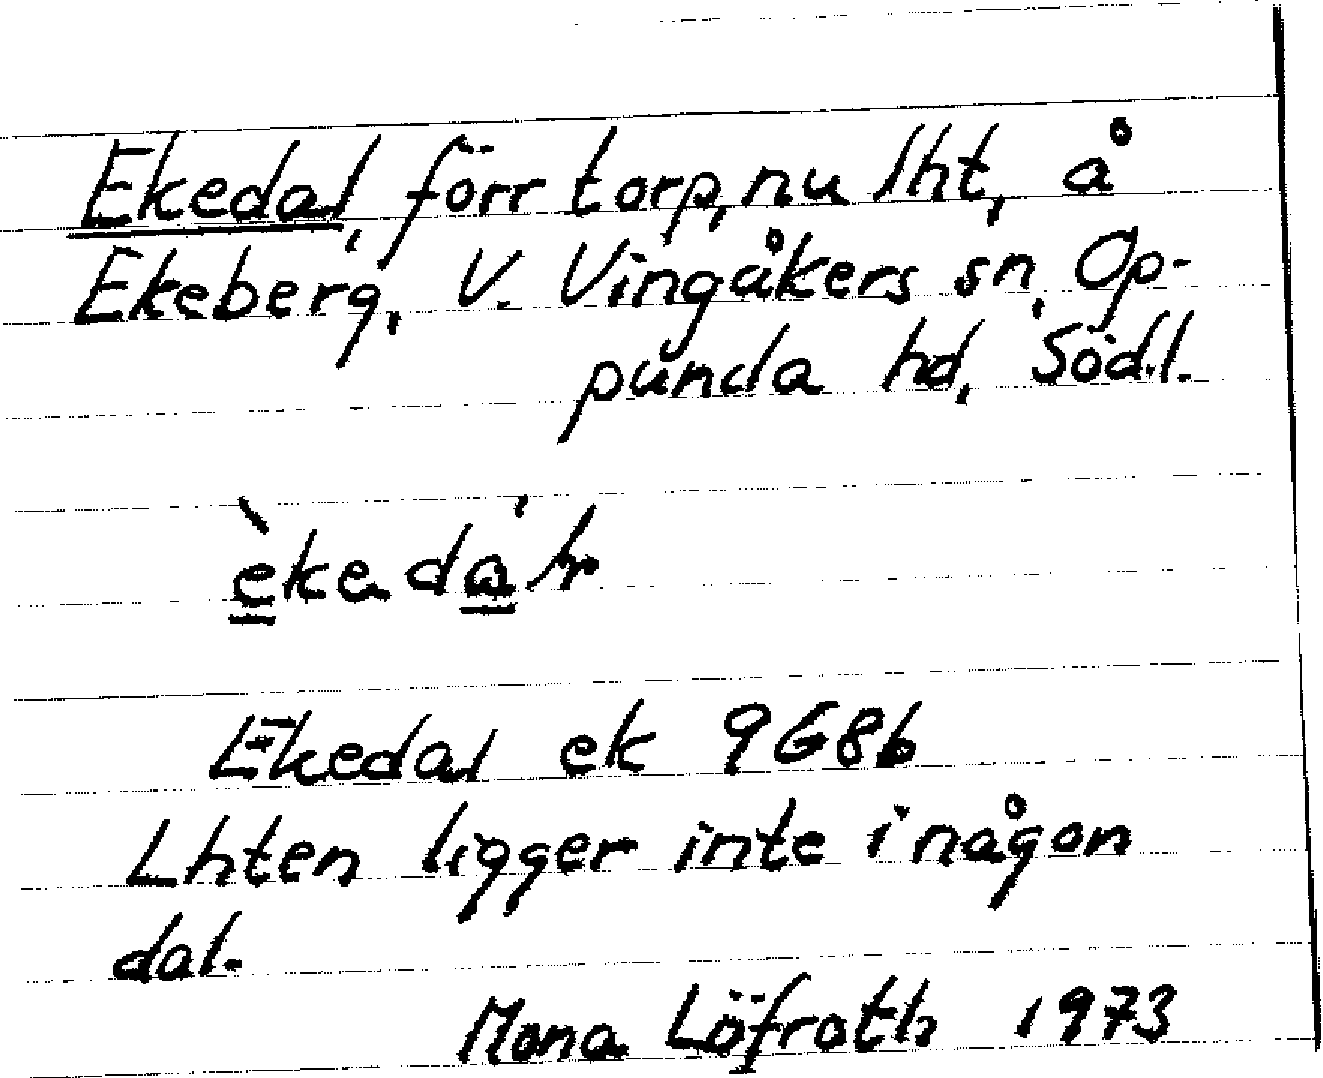 Ekedal, förr torp, nu lht, å
Ekeberg, V. Vingåkers sn, Op-
punda hd, Södl.
èkedá
Ekedal ek 9G8b
Lhten ligger inte i någon
dal.
Mona Löfroth 1973